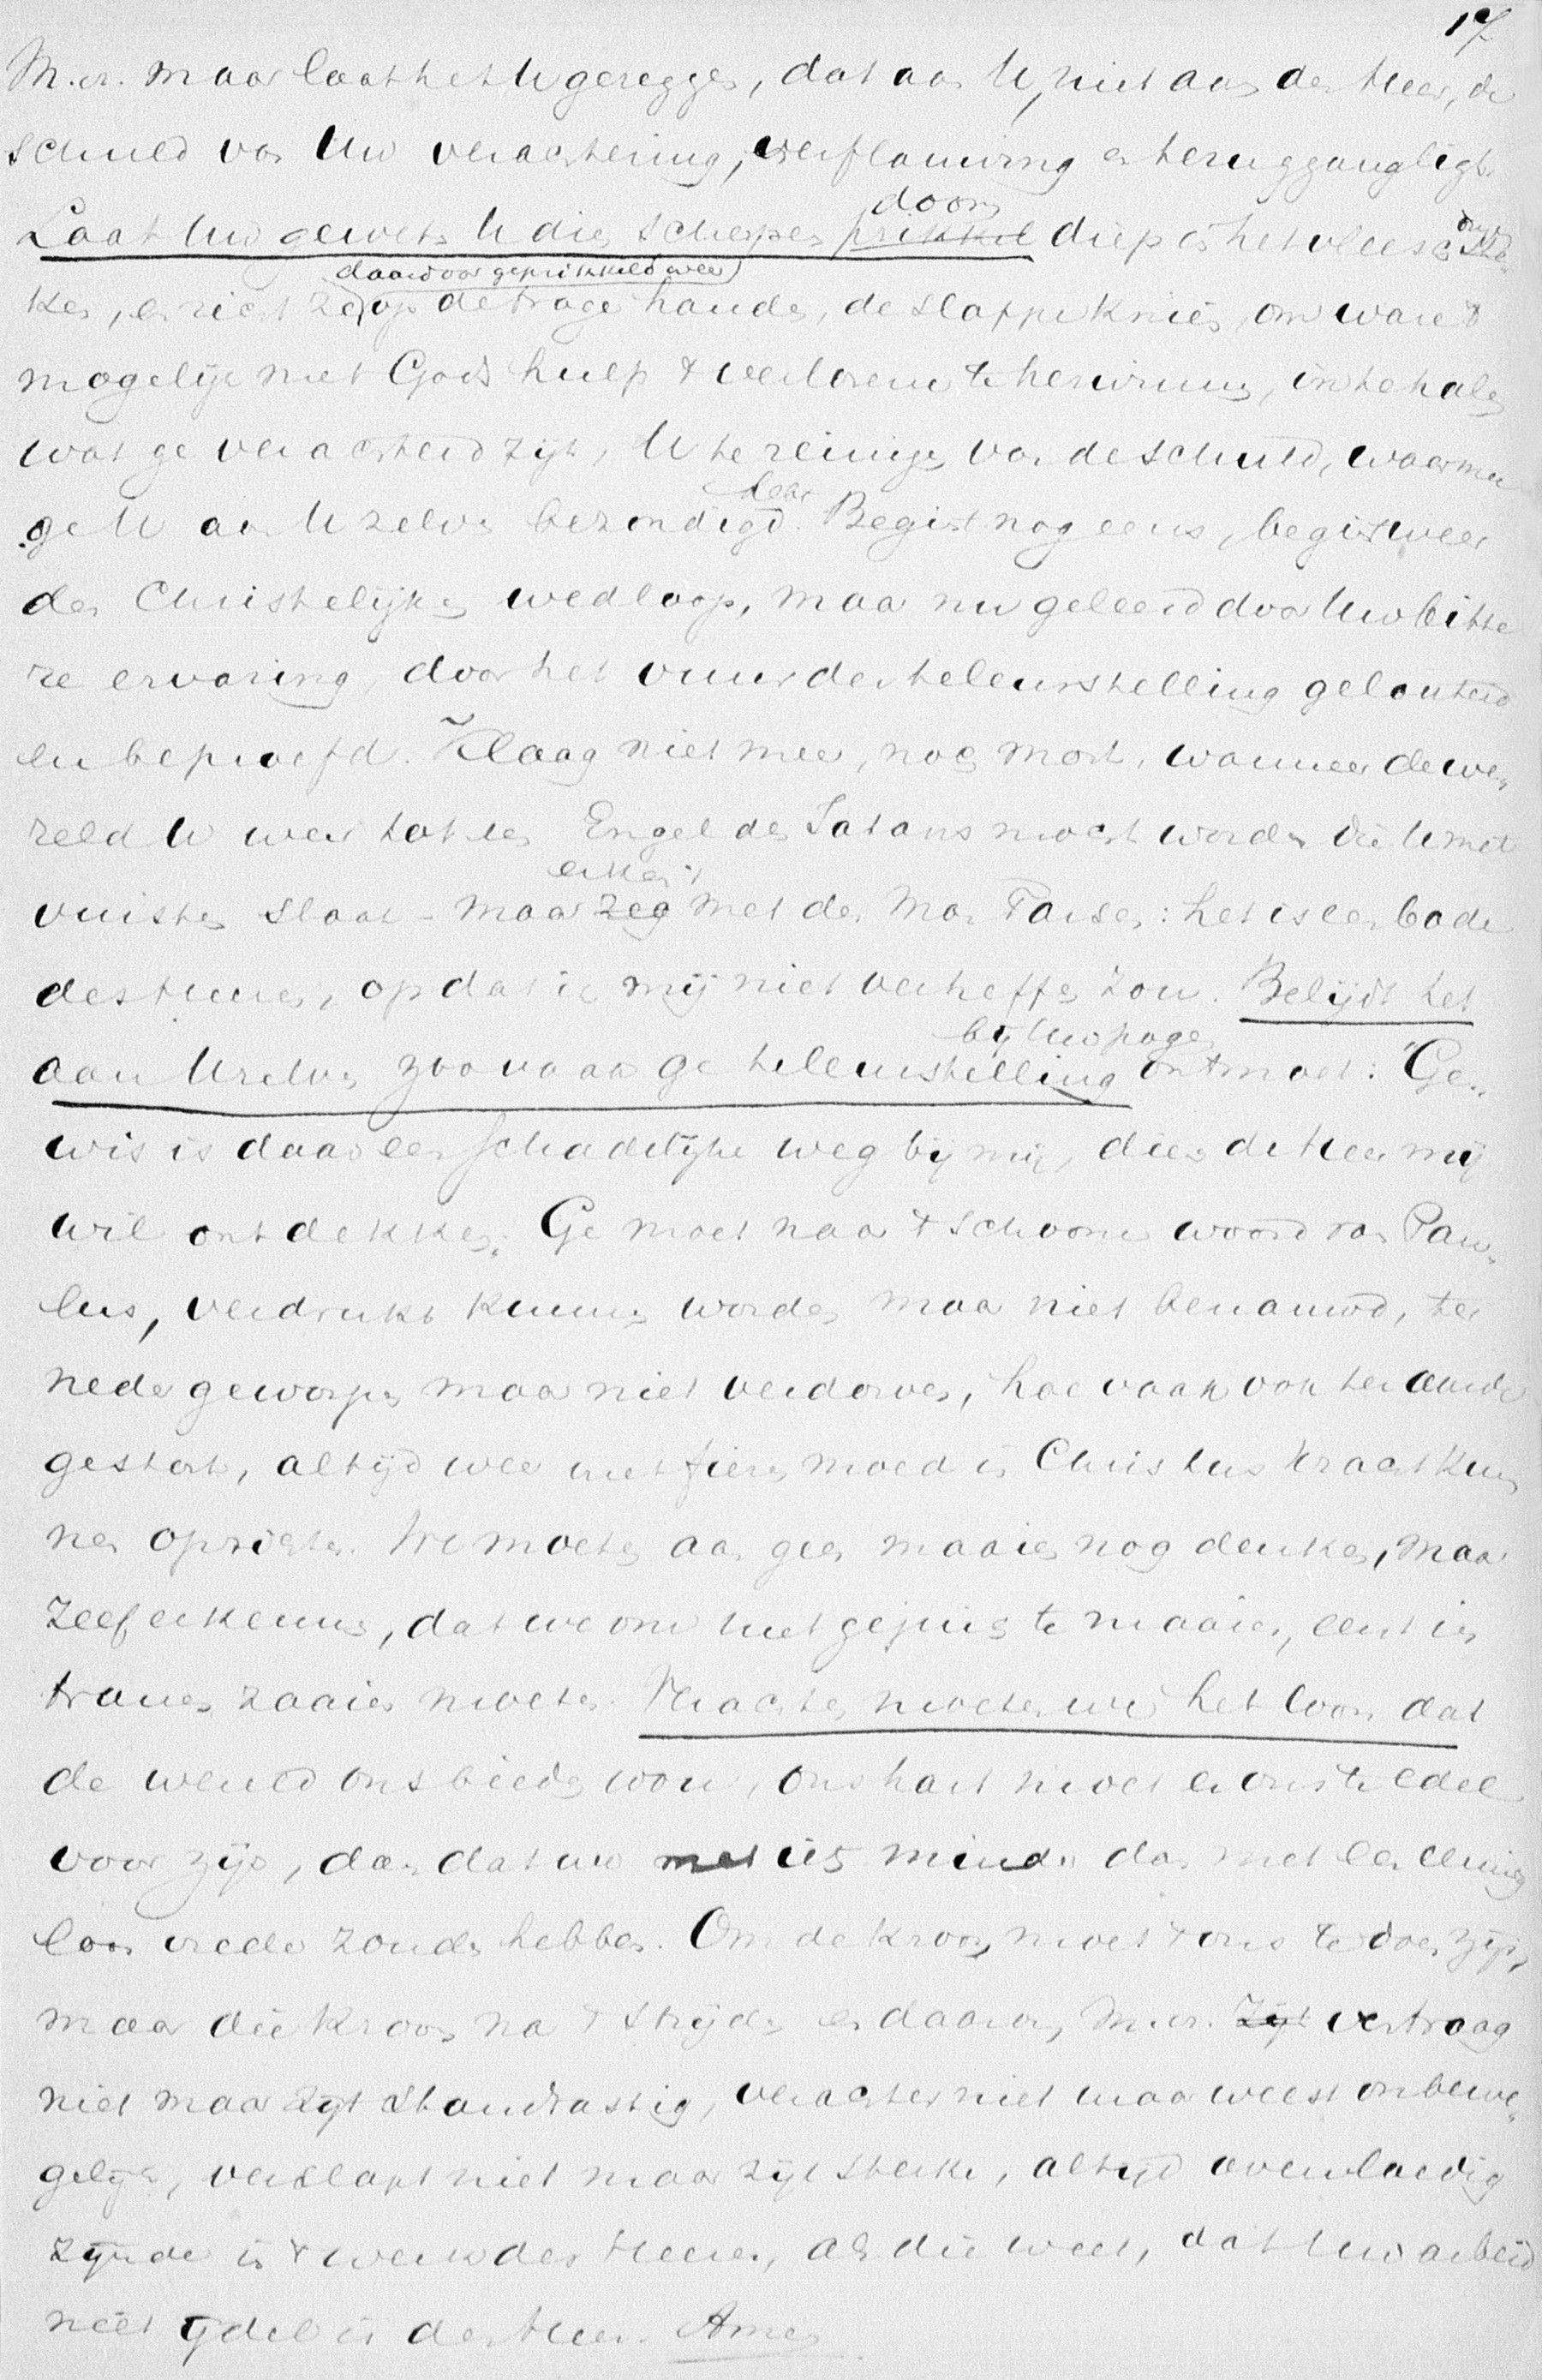 17
M.vr. maar laat het U gezeggen, dat aan U, niet aan den Heer, de
schuld van Uw verachtering, verflauwing en teruggang ligt.
Laat Uw geweten U dien scherpen prikkel doorn diep in het vleesch ste-
ken, en richt zoo, daardoor geprikkeld weer op de trage handen, de slappe knieën, om ware 't
mogelijk met Gods hulp 't verlorene te herwinnen, in te halen
wat ge verachterd zijt, U te reinigen van de schuld, waarmee
ge U aan Uzelven bezondigd hebt. Begint nog eens, begint weer
den Christelijken wedloop, maar nu geleerd door Uw bitte
re ervaring, door het vuur der teleurstelling gelouterd
en beproefd. Klaag niet meer, noch mort, wanneer de we-
reld U weer tot een Engel des Satans mocht worden die U met
vuisten slaat - maar zeg erken 't met den Man Tarsen: het is een bode
des Heeren, opdat ik mij niet verheffen zou. Belijdt het
aan Uzelven zoo vaak ge teleurstelling bij Uw pogen ontmoet: "Ge-
wis is daar een schadelijke weg bij mij, dien de Heer mij
wil ontdekken." Ge moet naar 't schoone woord van Pau-
lus, verdrukt kunnen worden maar niet benauwd, ter
neder geworpen maar niet verdorven, hoe vaak ook ter aarde
gestort, altijd weer met fieren moed in Christus kracht kun
nen oprichten. We moeten aan geen maaien nog denken, maar
zelf erkennen, dat we om met gejuich te maaien, eerst in
tranen zaaien moeten. Verachten moeten we het loon dat
de wereld ons bieden wou, ons hart moet er ons te edel
voor zijn, dan dat we met iets minder dan met een eeuwig
loon vrede zouden hebben. Om de kroon moet 't ons te doen zijn,
maar die kroon na 't strijden en daarom, M.vr. zijt vertraag
niet maar zijt standvastig, verachter niet maar weest onbewe-
gelijk, verslapt niet maar zijt sterk, altijd overvloedig
zijnde in 't werk des Heeren, als die weet, dat Uw arbeid
niet ijdel is in den Heer. Amen